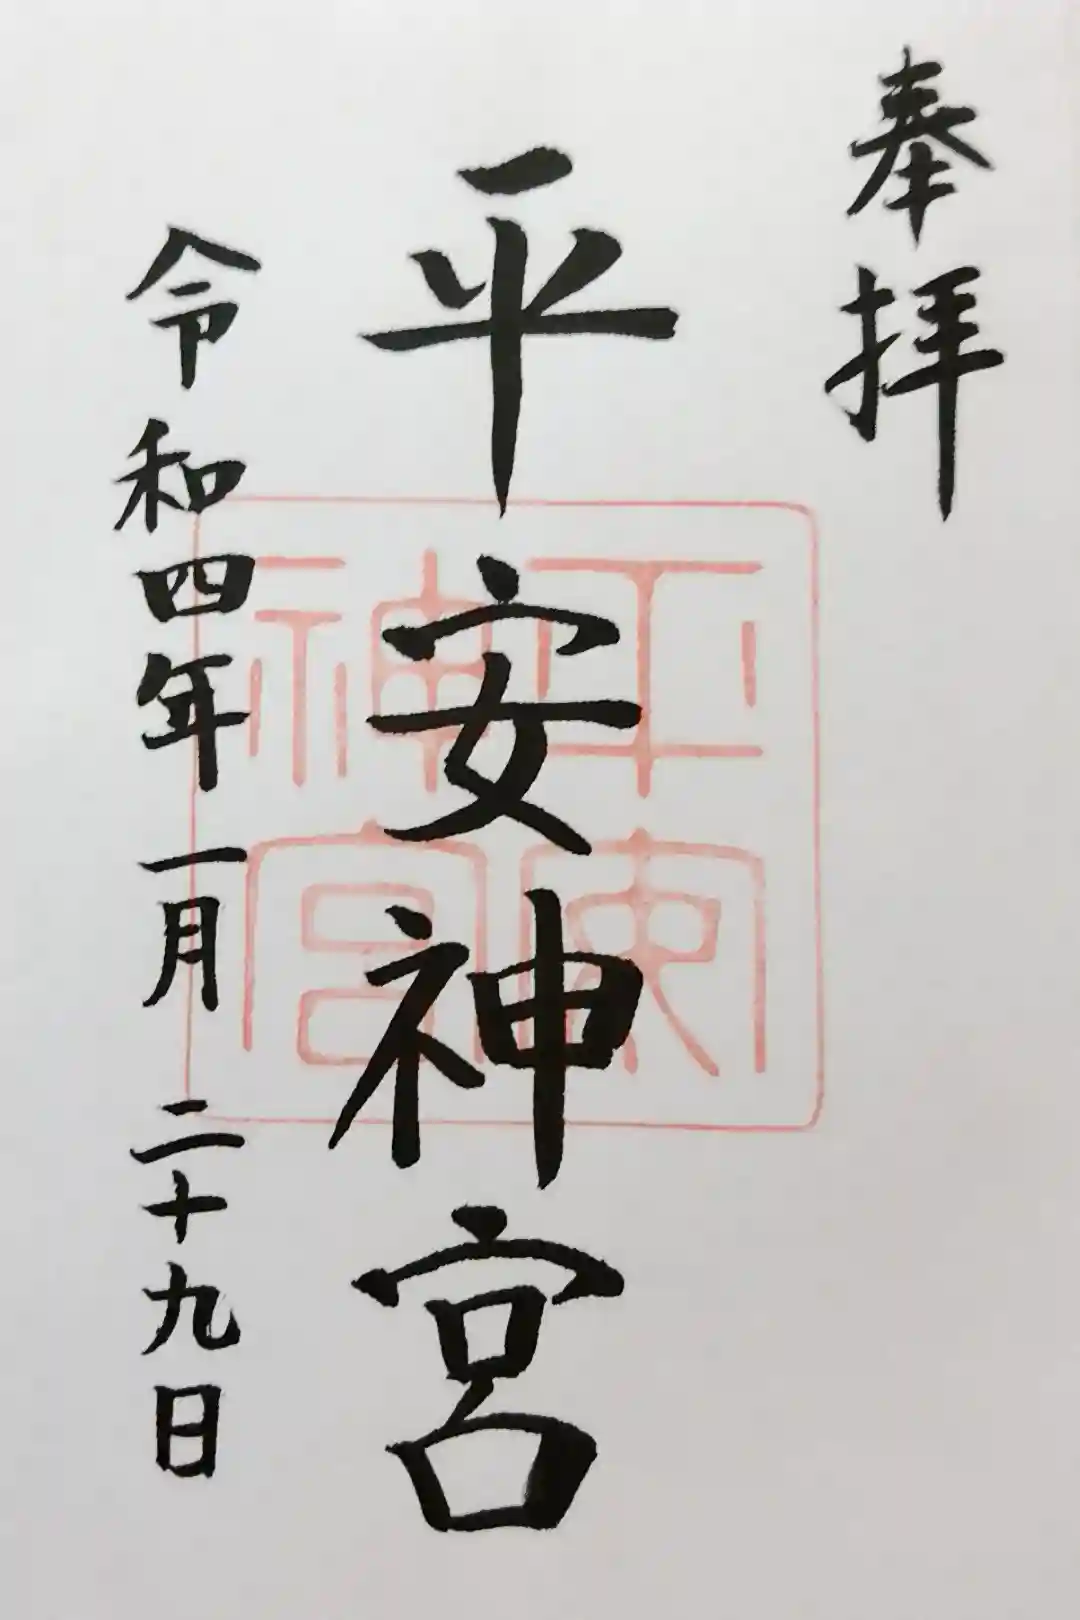 奉拝
平安神宮
平安神宮
令和四年一月二十九日